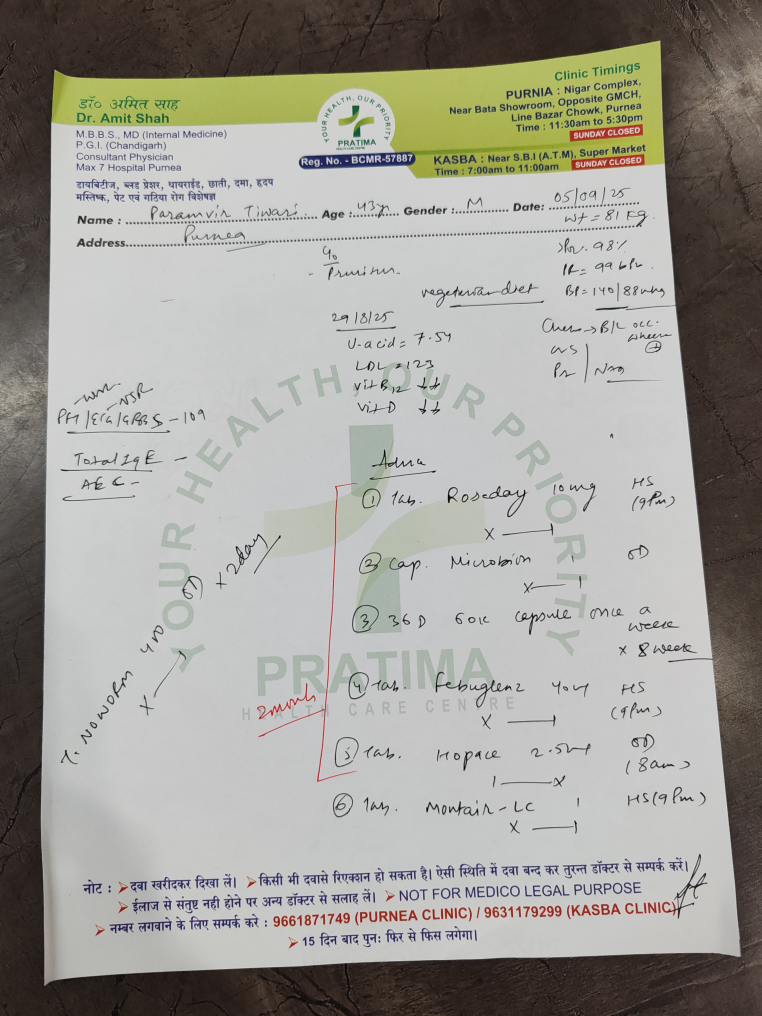 डॉ० अमित साह
Dr. Amit Shah
M.B.B.S., MD (Internal Medicine)
P.G.I. (Chandigarh)
Consultant Physician
Max 7 Hospital Purnea
डायबिटीज, ब्लड प्रेशर, थायराईड, छाती, दमा, हृदय
मस्तिष्क, पेट एवं गठिया रोग विशेषज्ञ
YOUR HEALTH, OUR PRIORITY
PRATIMA
HEALTH CARE CENTRE
Reg. No. - BCMR-57887
Clinic Timings
PURNIA : Nigar Complex,
Near Bata Showroom, Opposite GMCH,
Line Bazar Chowk, Purnea
Time : 11:30am to 5:30pm
SUNDAY CLOSED
KASBA : Near S.B.I (A.T.M), Super Market
Time : 7:00am to 11:00am SUNDAY CLOSED
Name : Paramvir Tiwari Age : 43yr Gender : M Date: 05/09/25
Address Purnea
wt = 81 kg.
98%
99 bpm
BP = 140/88
c/o
- Pruritus
vegeterian diet
29/8/25
U-acid = 7.54
LDL = 123
Vit B12 ↓↓
Vit D ↓↓
Chest → B/L occ. wheeze ⊕
CVS
NSR
- 109
Total IgE -
AEC -
Advice
① Tab. Roseday 10mg HS (9Pm)
X — 1
② Cap. Microbion 1 OD
X — 1
③ 36D 60K capsule once a week
x 8 week
④ Tab. Febuglenz 40mg HS (9Pm)
X — 1
⑤ Tab. Hopace 2.5mg OD (8am)
1 — X
⑥ Tab. Montair-LC 1 HS (9Pm)
X — 1
2 month
T. NOWORM 400 OD x 2day
X — 1
YOUR HEALTH, OUR PRIORITY
PRATIMA
HEALTH CARE CENTRE
नोट : ➤ दवा खरीदकर दिखा लें। ➤ किसी भी दवासे रिएक्शन हो सकता है। ऐसी स्थिति में दवा बन्द कर तुरन्त डॉक्टर से सम्पर्क करें।
➤ ईलाज से संतुष्ट नही होने पर अन्य डॉक्टर से सलाह लें। ➤ NOT FOR MEDICO LEGAL PURPOSE
➤ नम्बर लगवाने के लिए सम्पर्क करे : 9661871749 (PURNEA CLINIC) / 9631179299 (KASBA CLINIC)
➤ 15 दिन बाद पुन: फिर से फिस लगेगा।